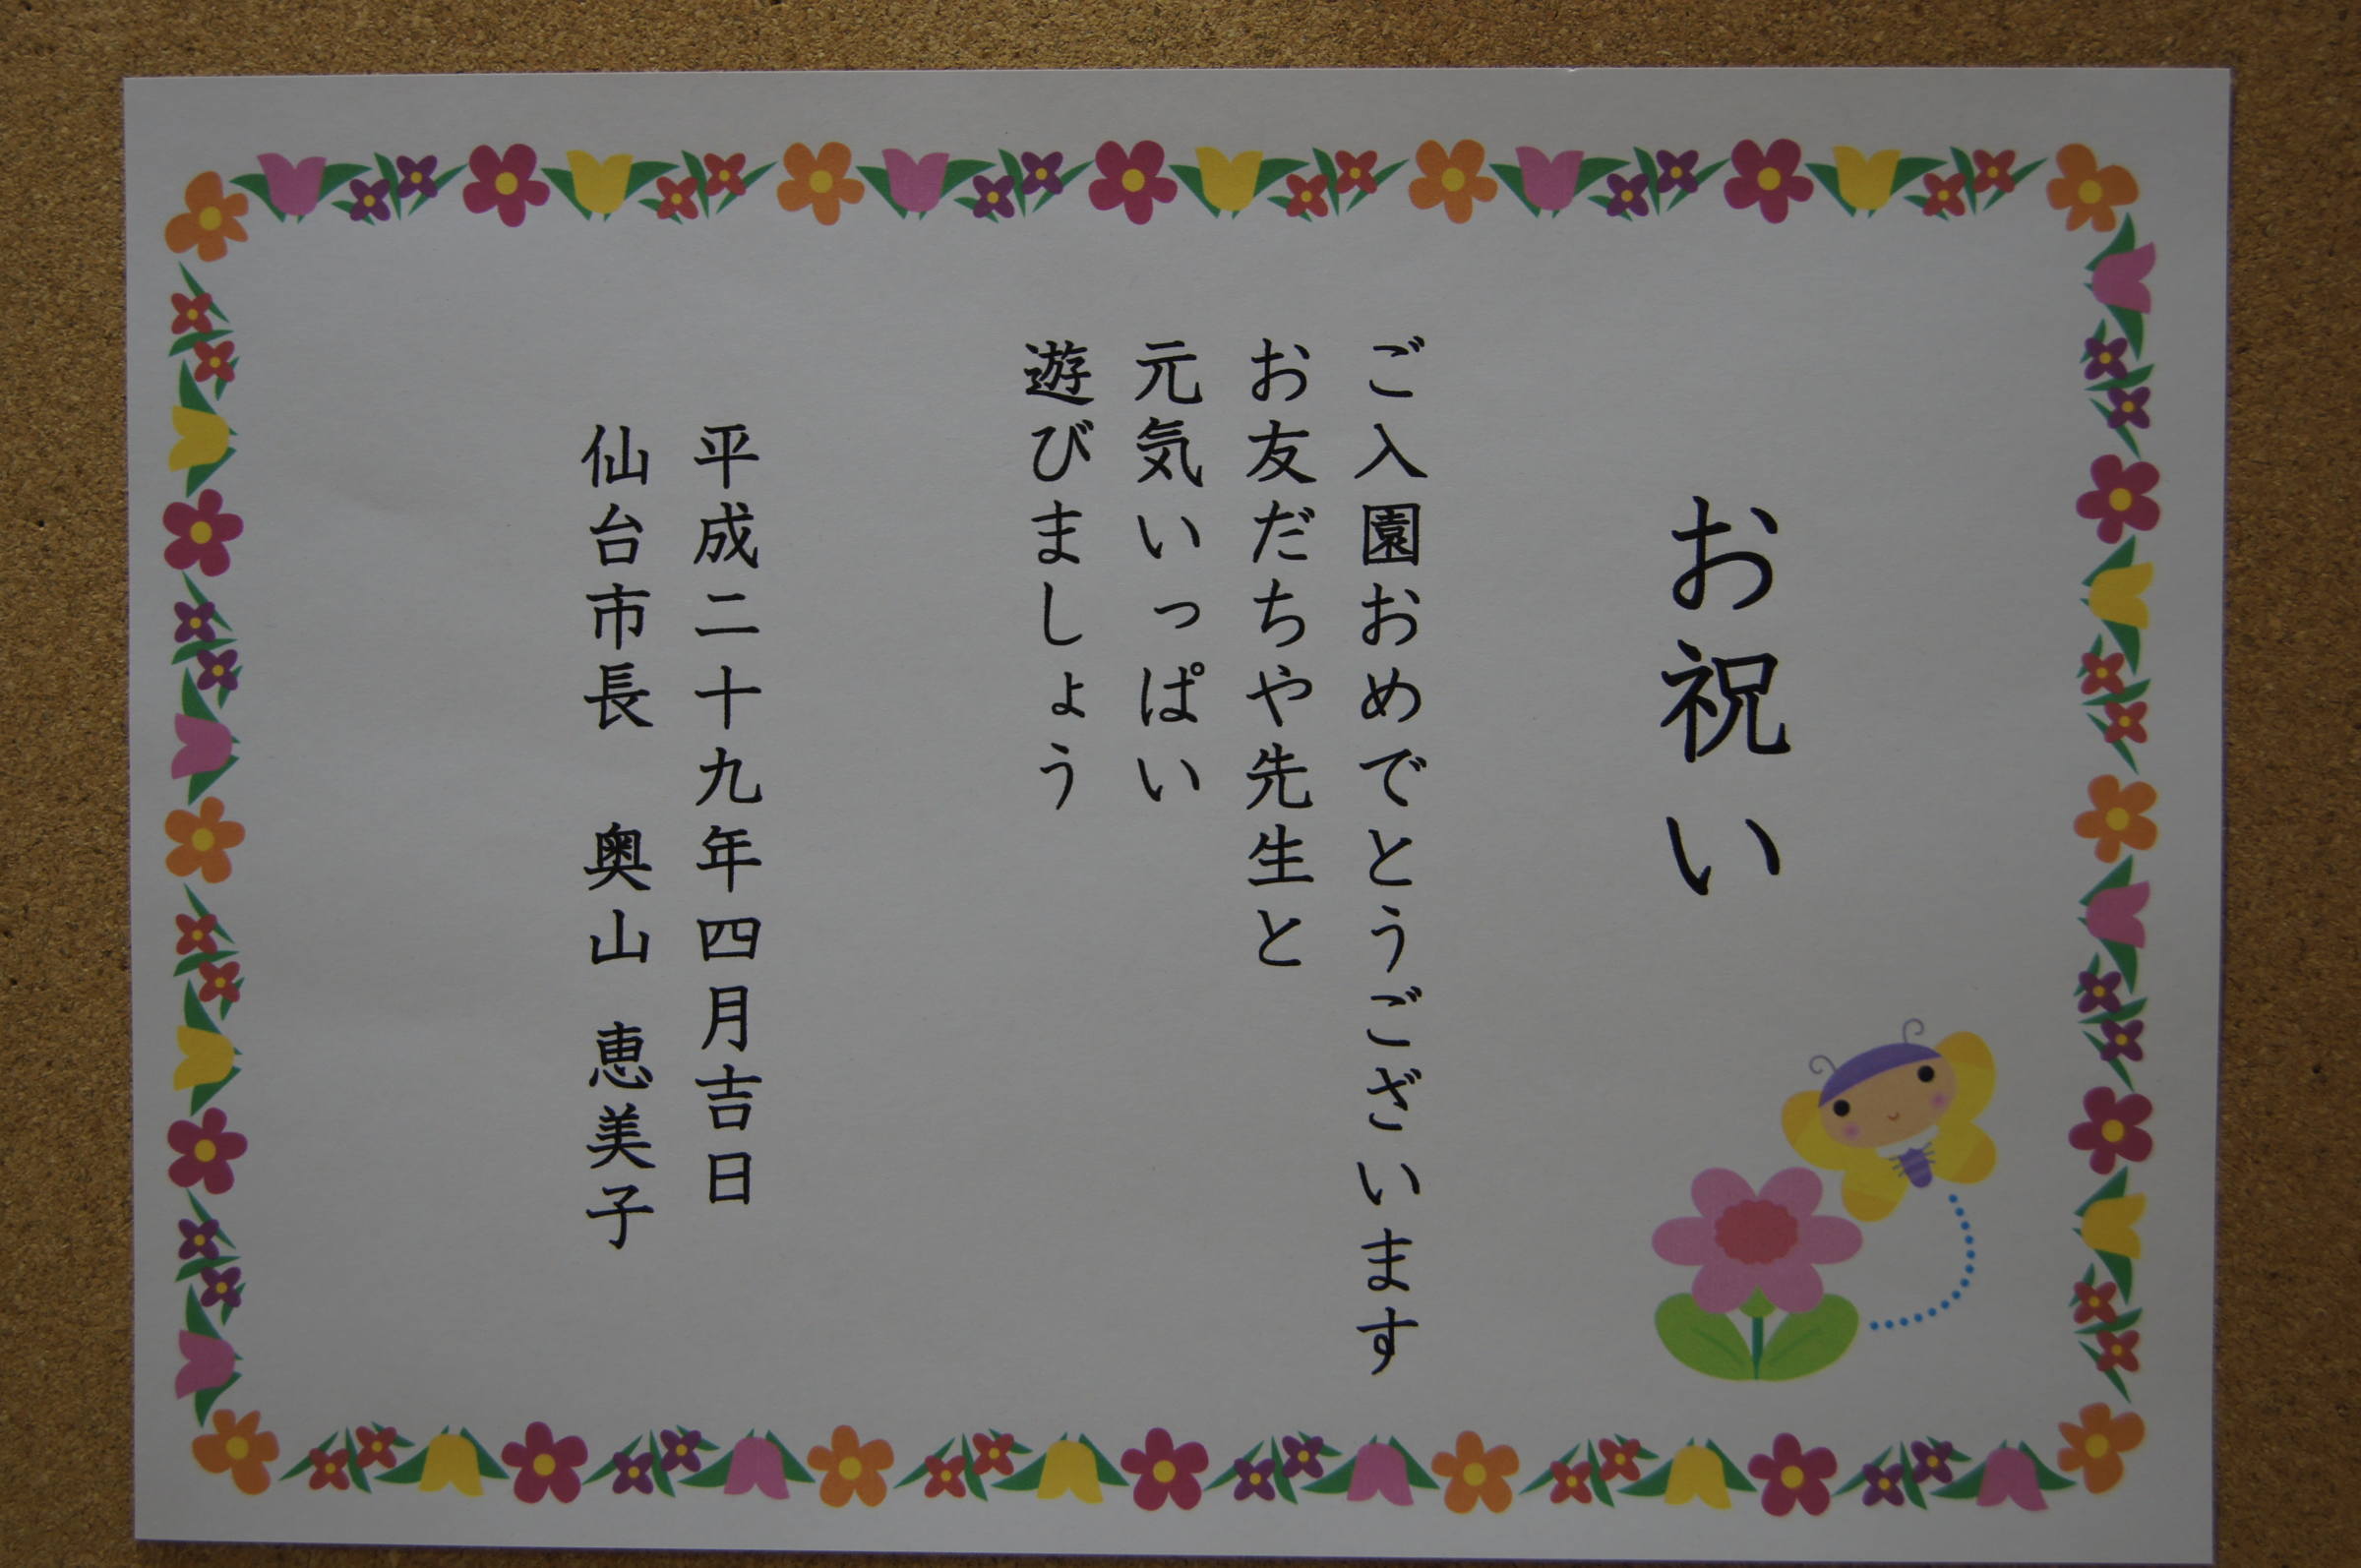 お祝い
ご入園おめでとうございます
お友だちや先生と
元気いっぱい
遊びましょう
平成二十九年四月吉日
仙台市長 奥山 恵美子